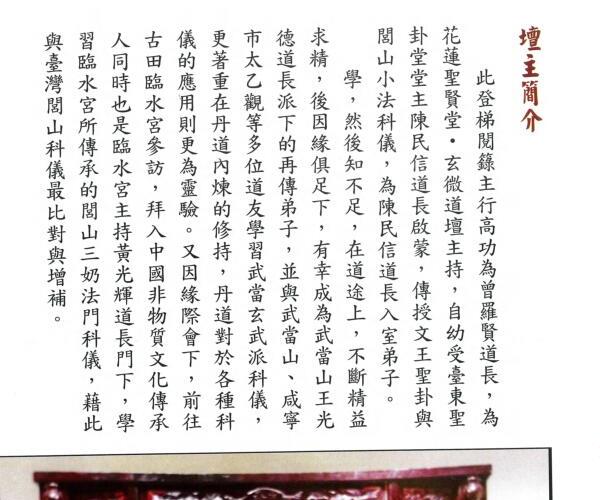 壇主簡介
此登梯閱籙主行高功為曾羅賢道長，為
花蓮聖賢堂・玄微道壇主持，自幼受臺東聖
卦堂堂主陳民信道長啟蒙，傳授文王聖卦與
閭山小法科儀，為陳民信道長入室弟子。
學，然後知不足，在道途上，不斷精益
求精，後因緣俱足下，有幸成為武當山王光
德道長派下的再傳弟子，並與武當山、咸寧
市太乙觀等多位道友學習武當玄武派科儀，
更著重在丹道內煉的修持，丹道對於各種科
儀的應用則更為靈驗。又因緣際會下，前往
古田臨水宮參訪，拜入中國非物質文化傳承
人同時也是臨水宮主持黃光輝道長門下，學
習臨水宮所傳承的閭山三奶法門科儀，藉此
與臺灣閭山科儀最比對與增補。